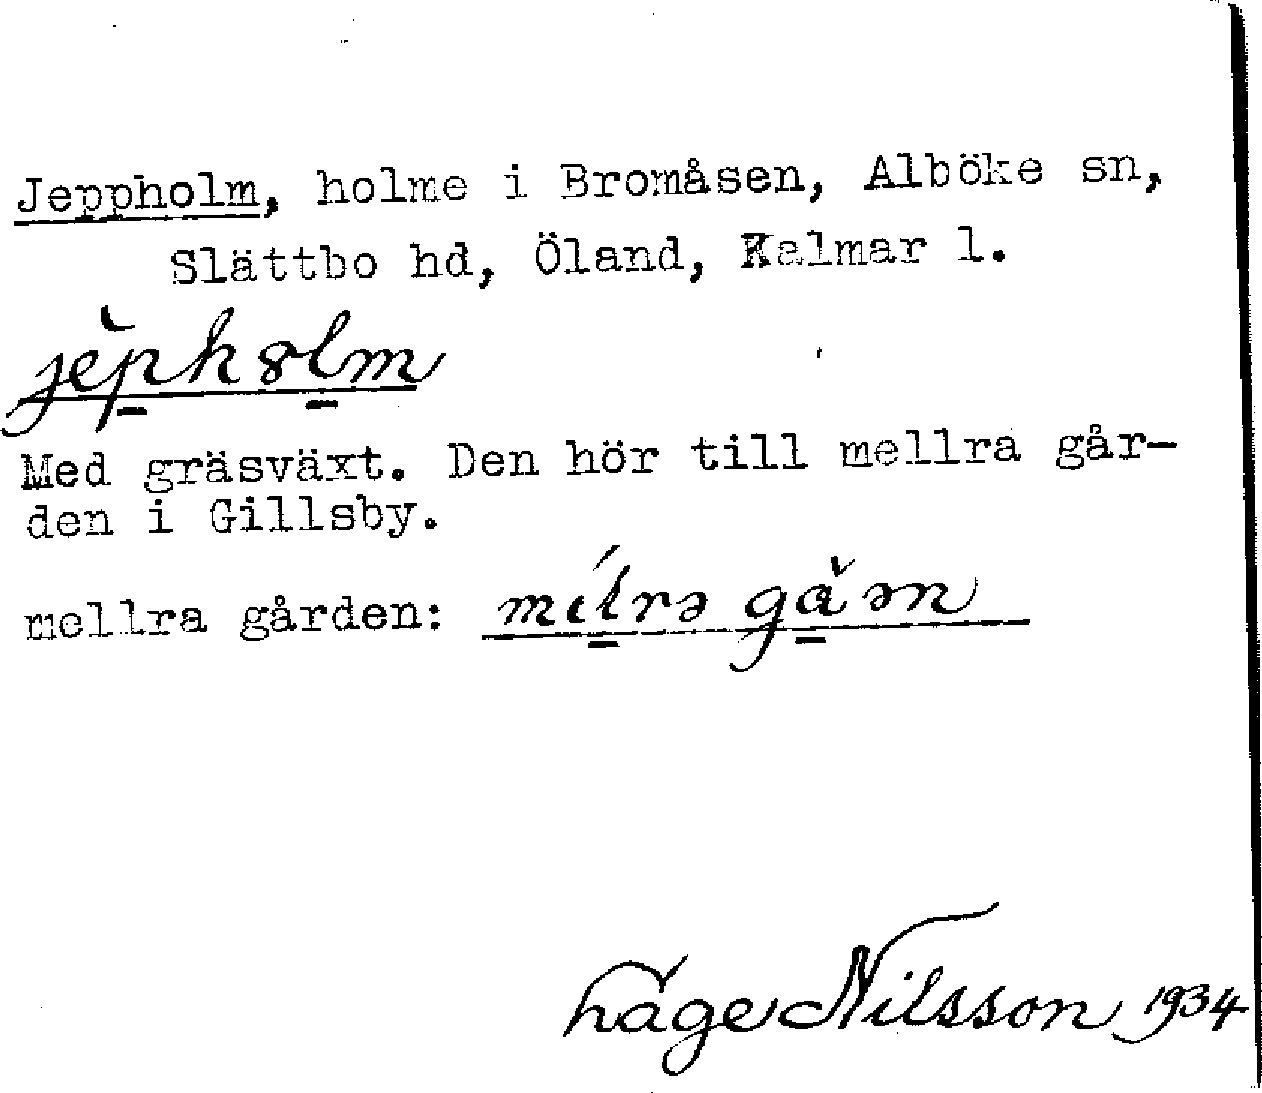 Jeppholm, holme i Bromåsen, Alböke sn,
Slättbo hd, Öland, Kalmar l.
jèpholm
Med gräsväxt. Den hör till mellra går-
den i Gillsby.
mellra gården:
Håge Nilsson 1934